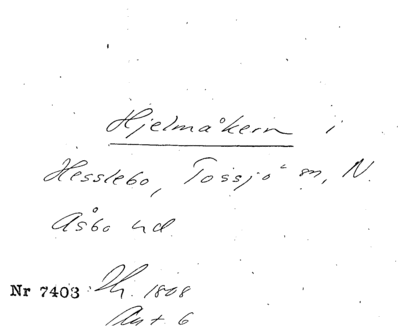 Hjelmåkern i
Hesslebo, Tossjö sn, N.
Åsbo hd
Nr 7403 1808
6